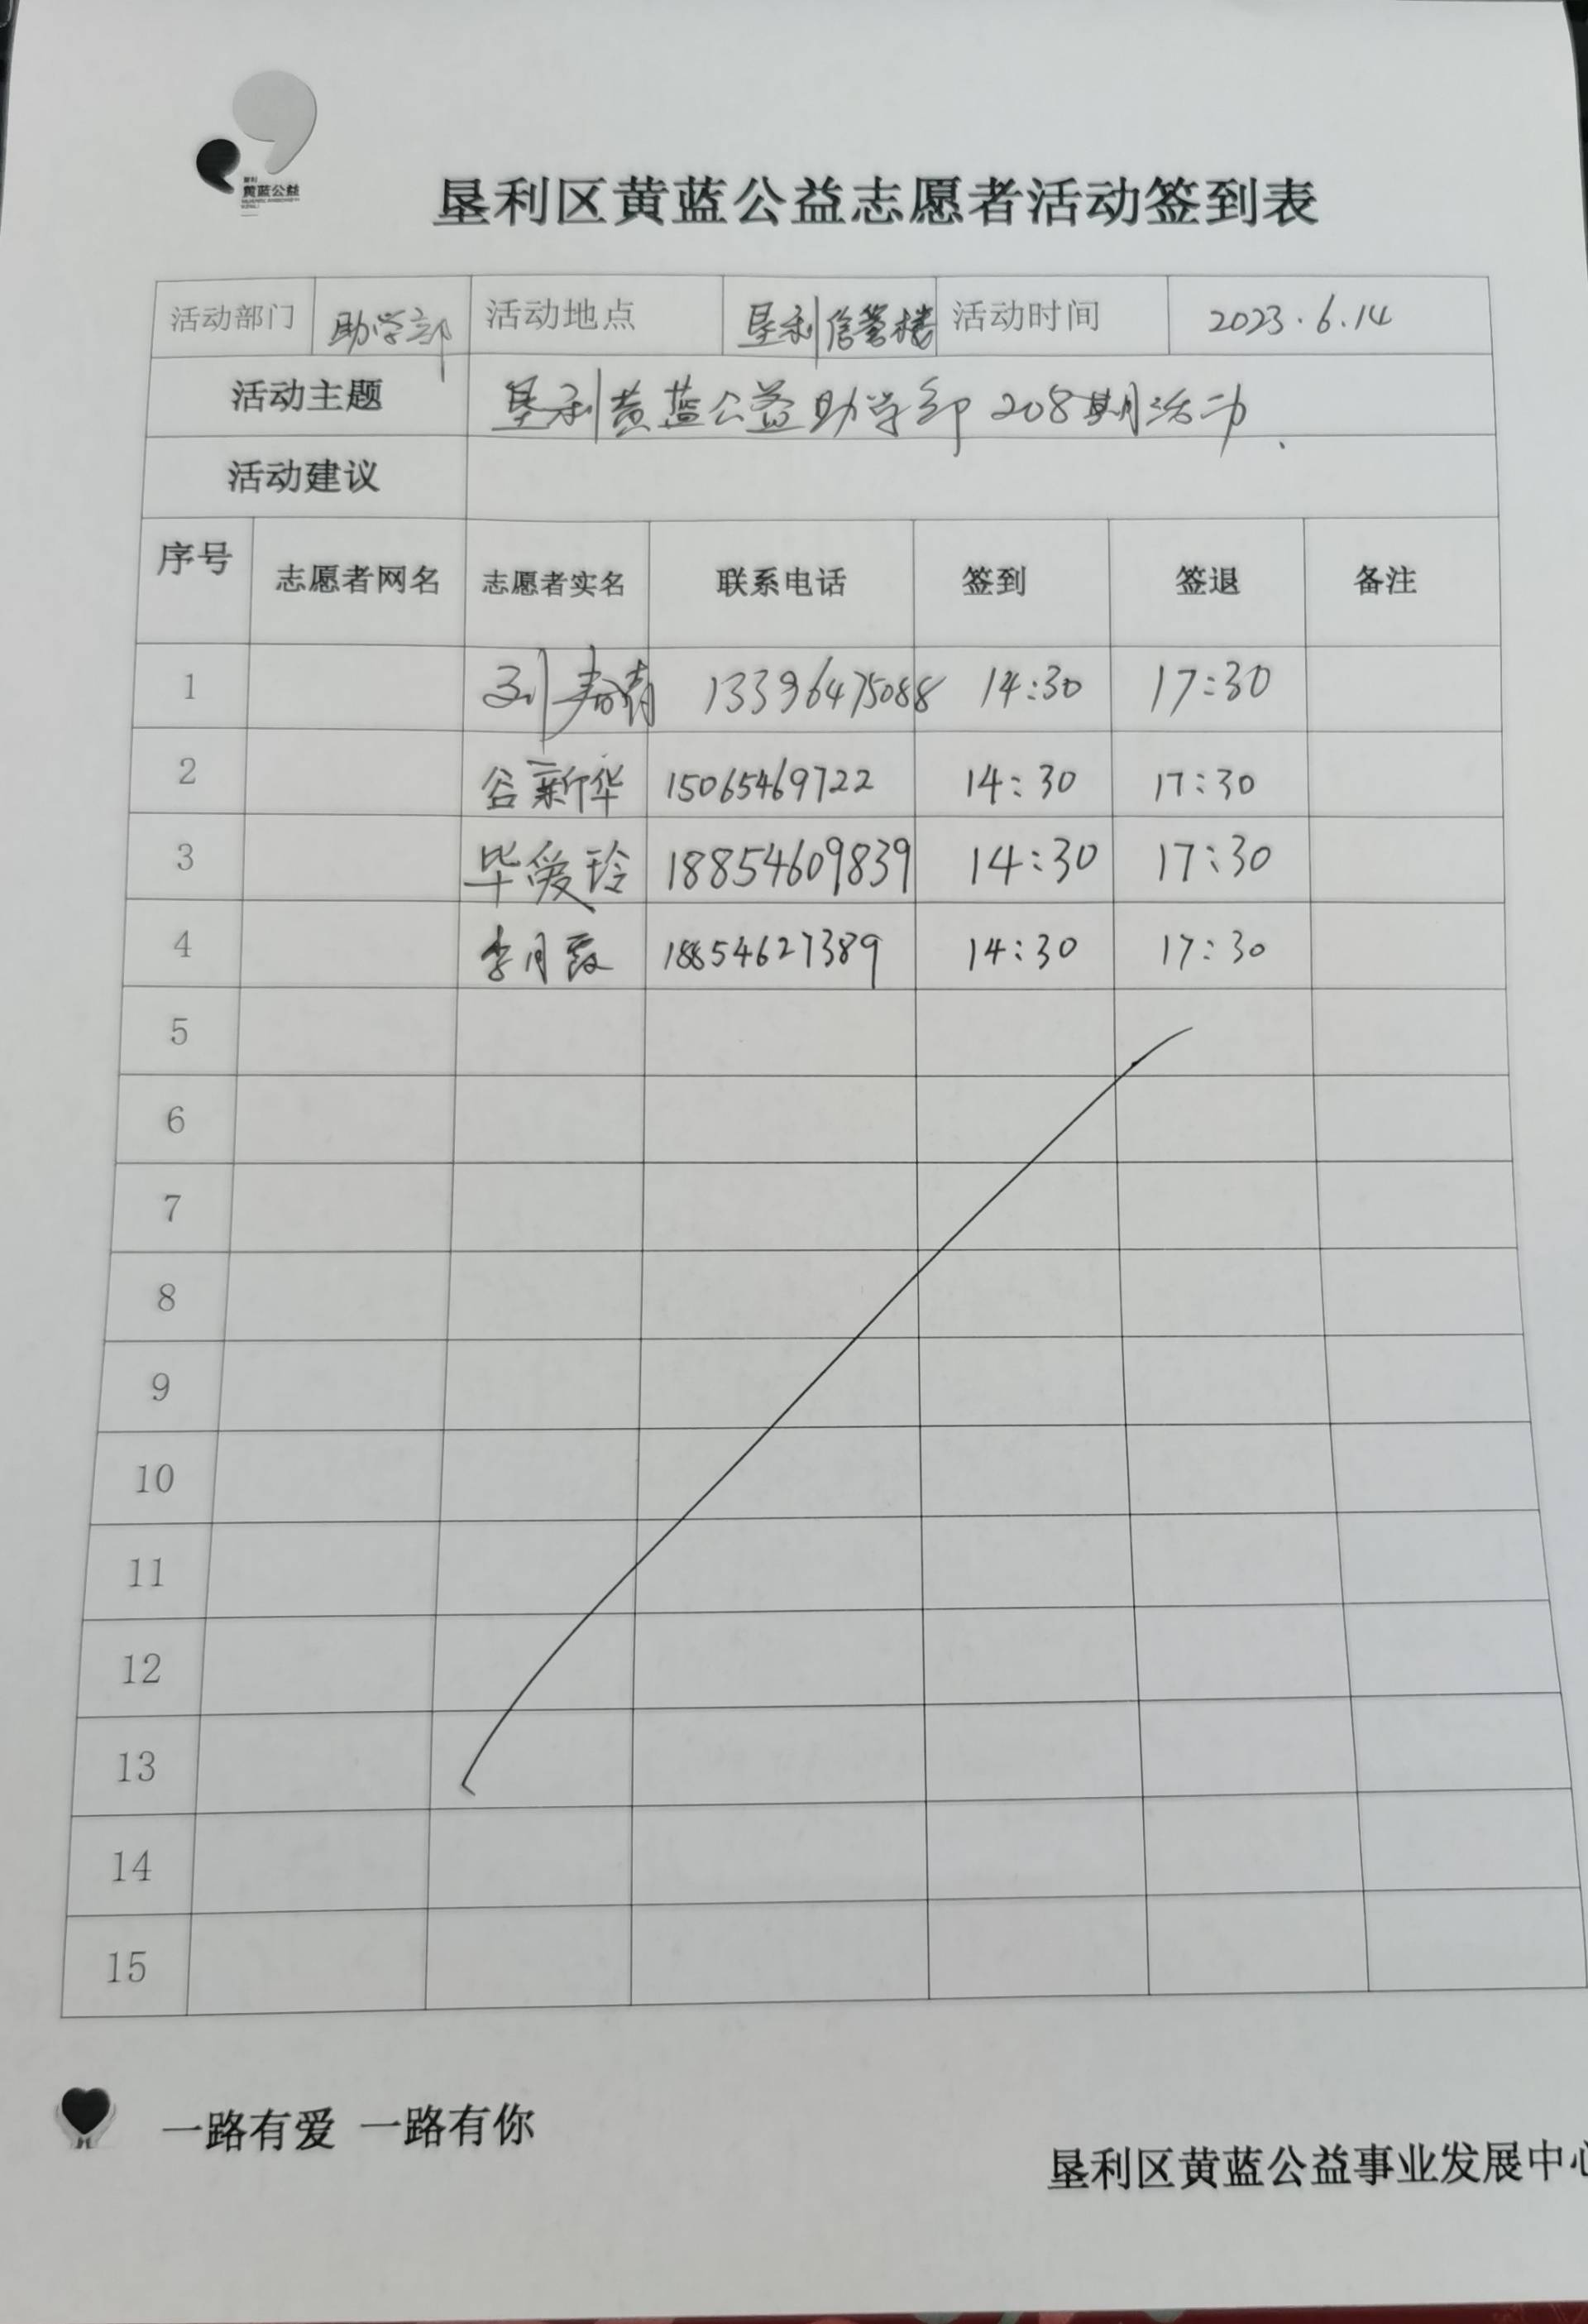 黄蓝公益
垦利区黄蓝公益志愿者活动签到表
活动部门 助学部 活动地点 垦利信誉楼 活动时间 2023.6.14
活动主题 垦利黄蓝公益助学部208期活动.
活动建议
序号 志愿者网名 志愿者实名 联系电话 签到 签退 备注
1 刘春青 13396475088 14:30 17:30
2 谷新华 15065469722 14:30 17:30
3 毕爱玲 18854609839 14:30 17:30
4 李月霞 18854627389 14:30 17:30
5
6
7
8
9
10
11
12
13
14
15
一路有爱 一路有你
垦利区黄蓝公益事业发展中心